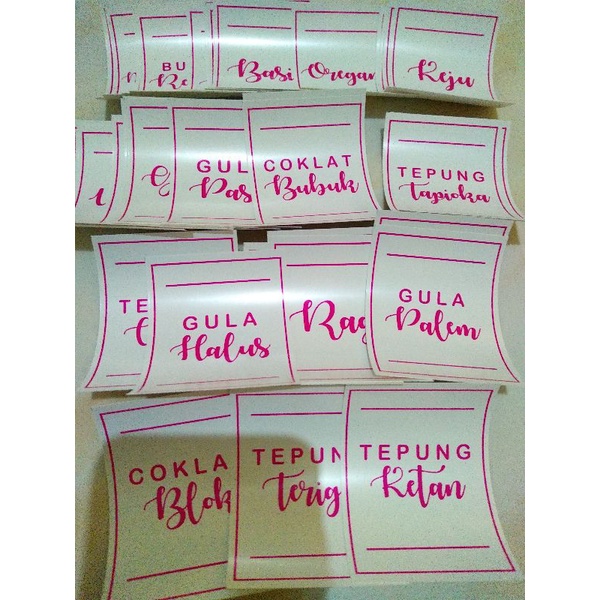 BU
Basi
Oregan
Keju
GUL
Pas
COKLAT
Bubuk
TEPUNG
Tapioka
TE
GULA
Halus
Rag
GULA
Palem
COKLA
Blok
TEPUN
Terig
TEPUNG
Ketan